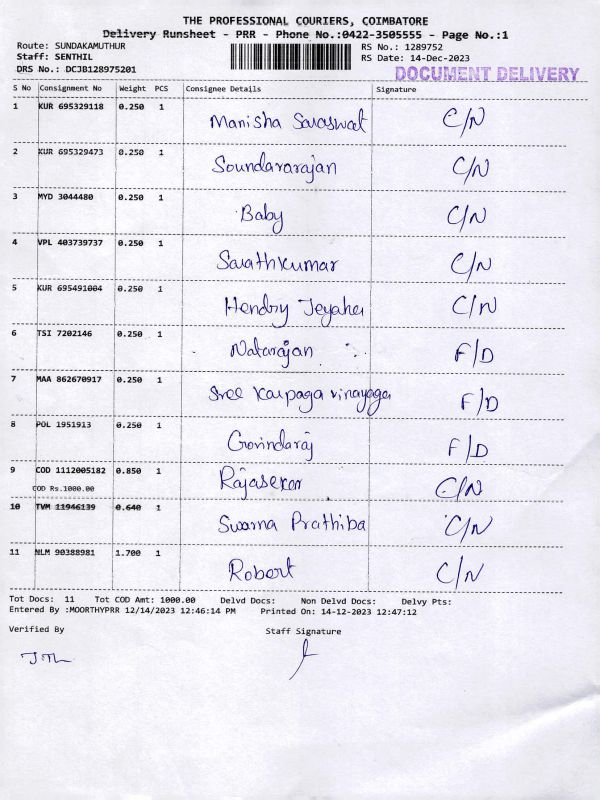 THE PROFESSIONAL COURIERS, COIMBATORE
Delivery Runsheet - PRR - Phone No.:0422-3505555 - Page No.:1
Route: SUNDAKAMUTHUR RS No.: 1289752
Staff: SENTHIL RS Date: 14-Dec-2023
DRS No.: DCJB128975201 DOCUMENT DELIVERY
S No Consignment No Weight PCS Consignee Details Signature
1 KUR 695329118 0.250 1 Manisha Saraswat C/N
2 KUR 695329473 0.250 1 Soundararajan C/N
3 MYD 3044480 0.250 1 Baby C/N
4 VPL 403739737 0.250 1 Sarathkumar C/N
5 KUR 695491004 0.250 1 Hendry C/N
6 TSI 7202146 0.250 1 Natarajan F/D
7 MAA 862670917 0.250 1 Sree Karpaga vinayaga F/D
8 POL 1951913 0.250 1 Govindaraj F/D
9 COD 1112005182 0.850 1 Rajasekar C/N
COD Rs.1000.00
10 TVM 11946139 0.640 1 Swarna Prathiba C/N
11 NLM 90388981 1.700 1 Robert C/N
Tot Docs: 11 Tot COD Amt: 1000.00 Delvd Docs: Non Delvd Docs: Delvy Pts:
Entered By :MOORTHYPRR 12/14/2023 12:46:14 PM Printed On: 14-12-2023 12:47:12
Verified By Staff Signature